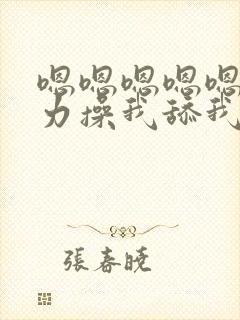 嗯嗯嗯嗯嗯
力操我舔我
張春曉